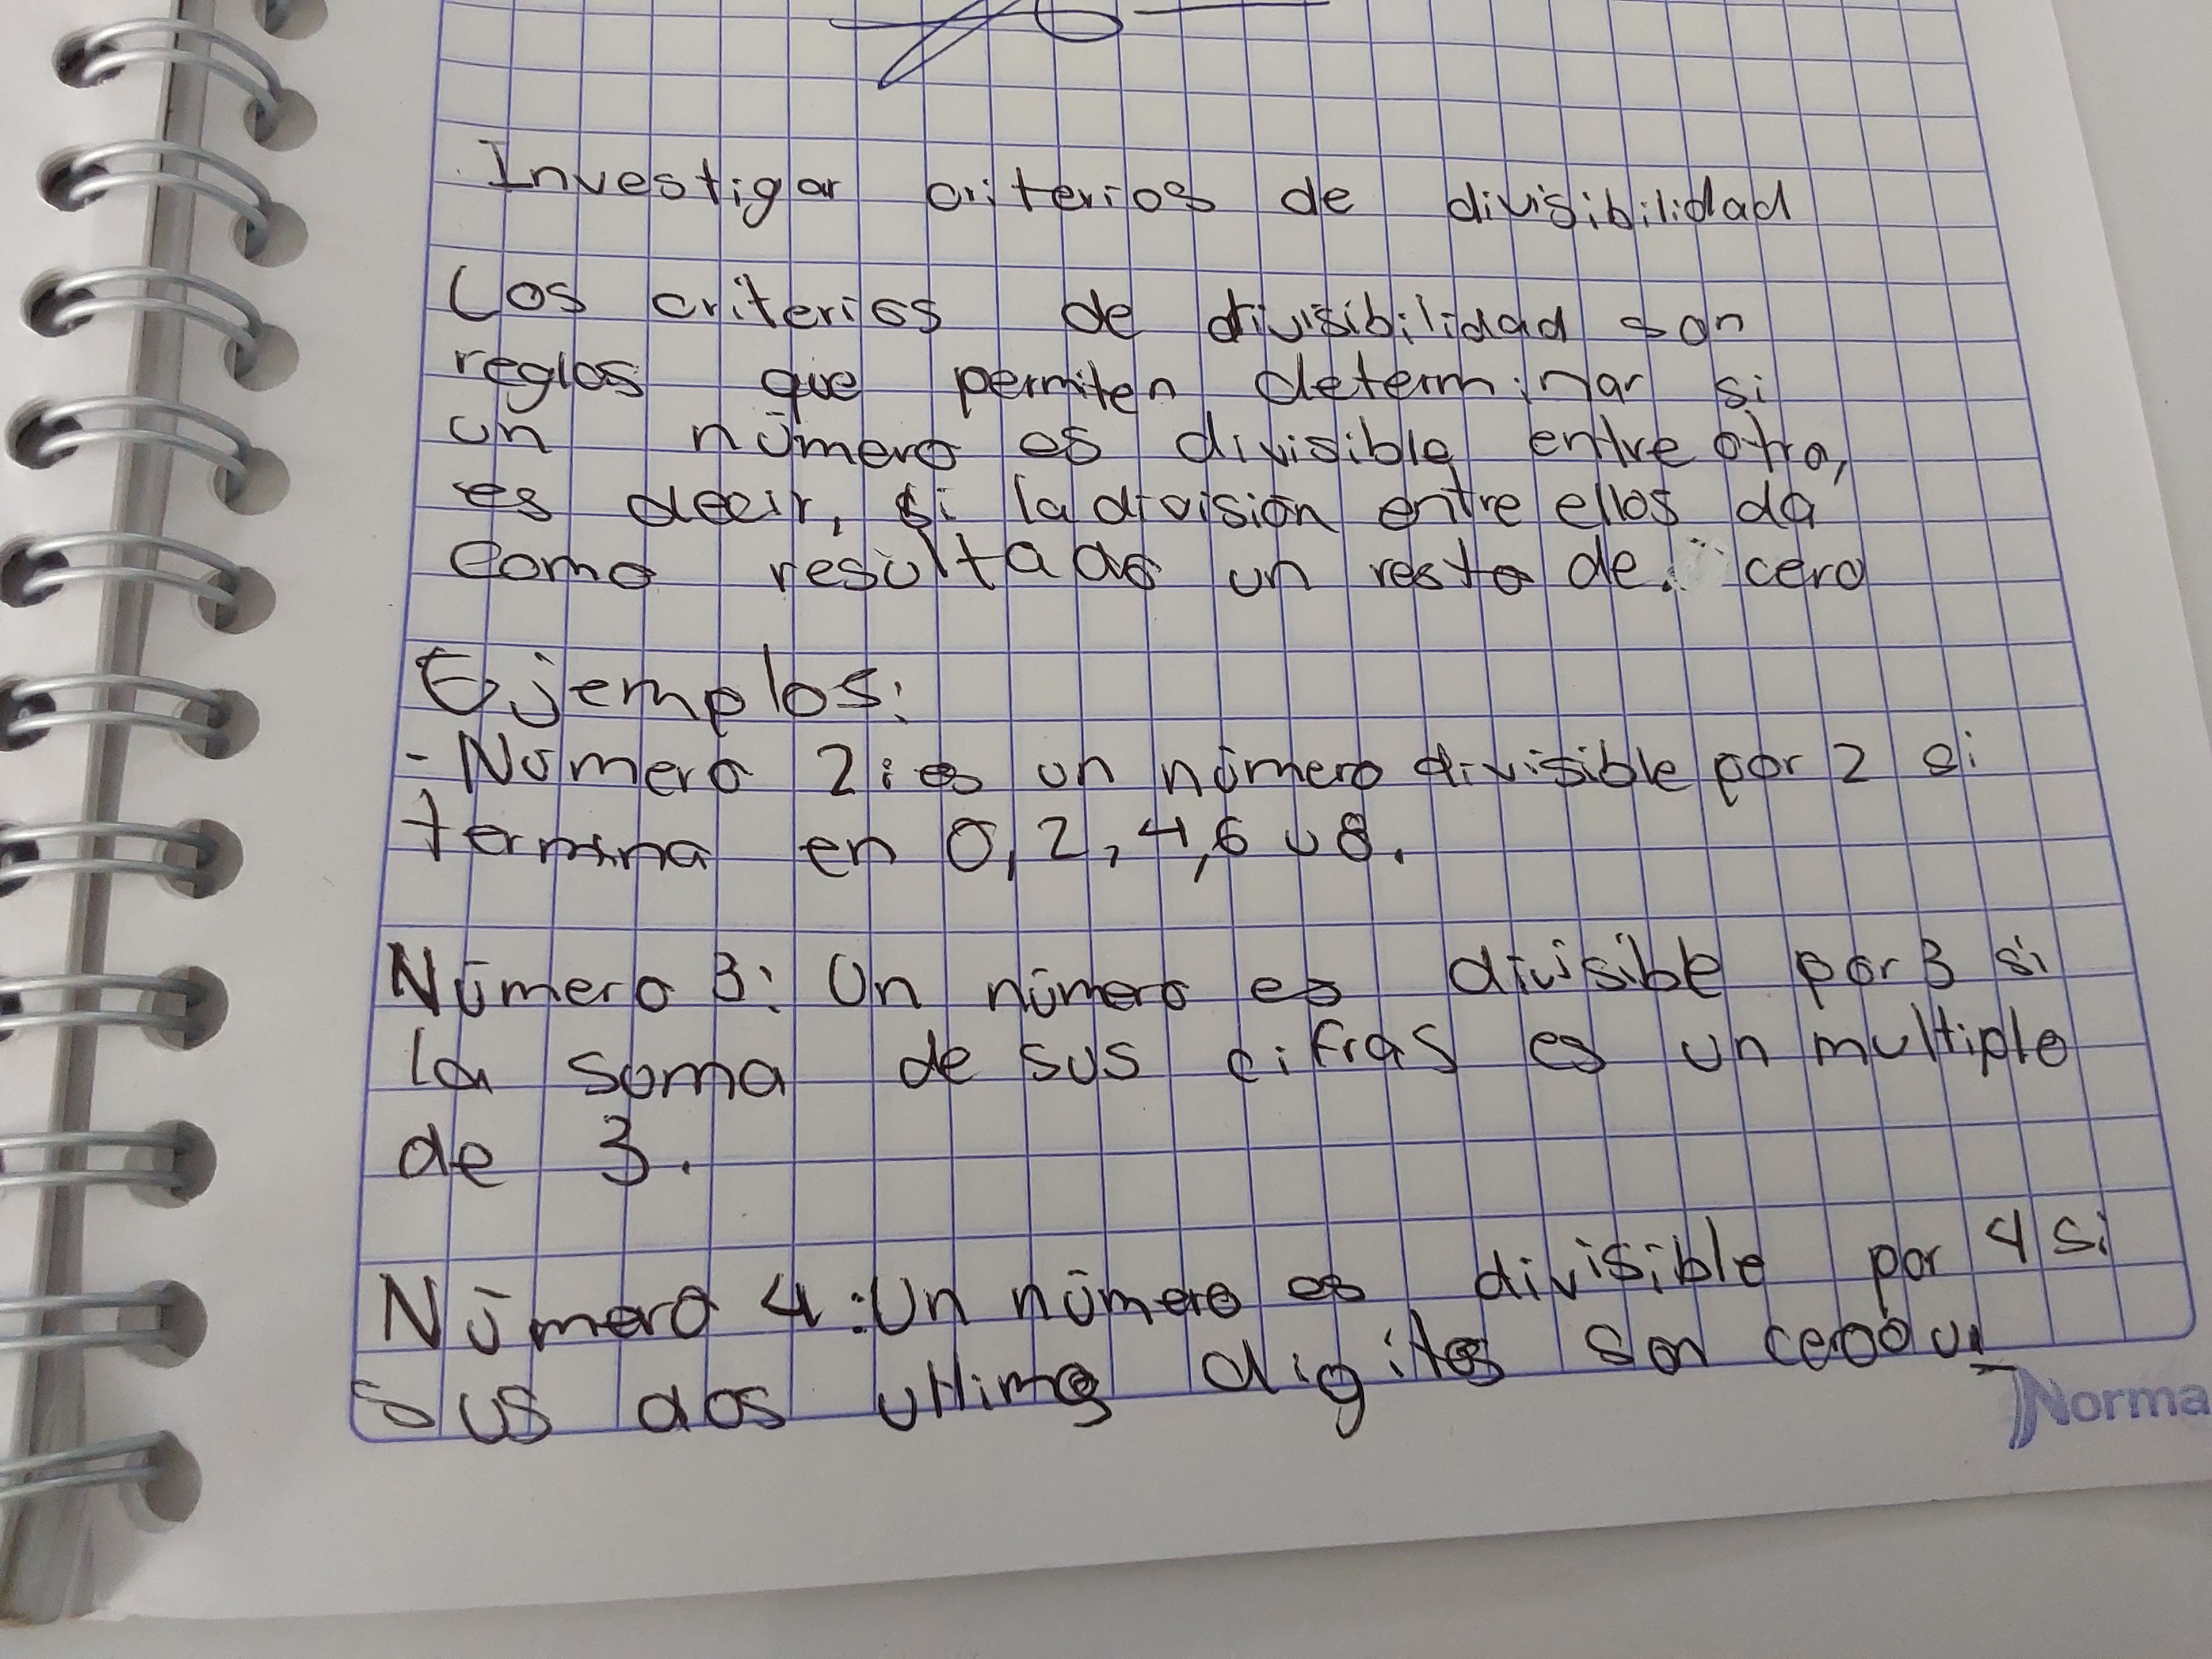 Investigar criterios de divisibilidad
Los criterios de divisibilidad son
reglas que permiten determinar si
un número es divisible entre otro,
es decir, si la división entre ellos da
como resultado un resto de. cero
Ejemplos:
- Número 2: es un número divisible por 2 si
termina en 0, 2, 4, 6 u 8.
Número 3: Un número es divisible por 3 si
la suma de sus cifras es un multiplo
de 3.
Número 4: Un número es divisible por 4 si
sus dos ultimos digitos son cero o un
Norma